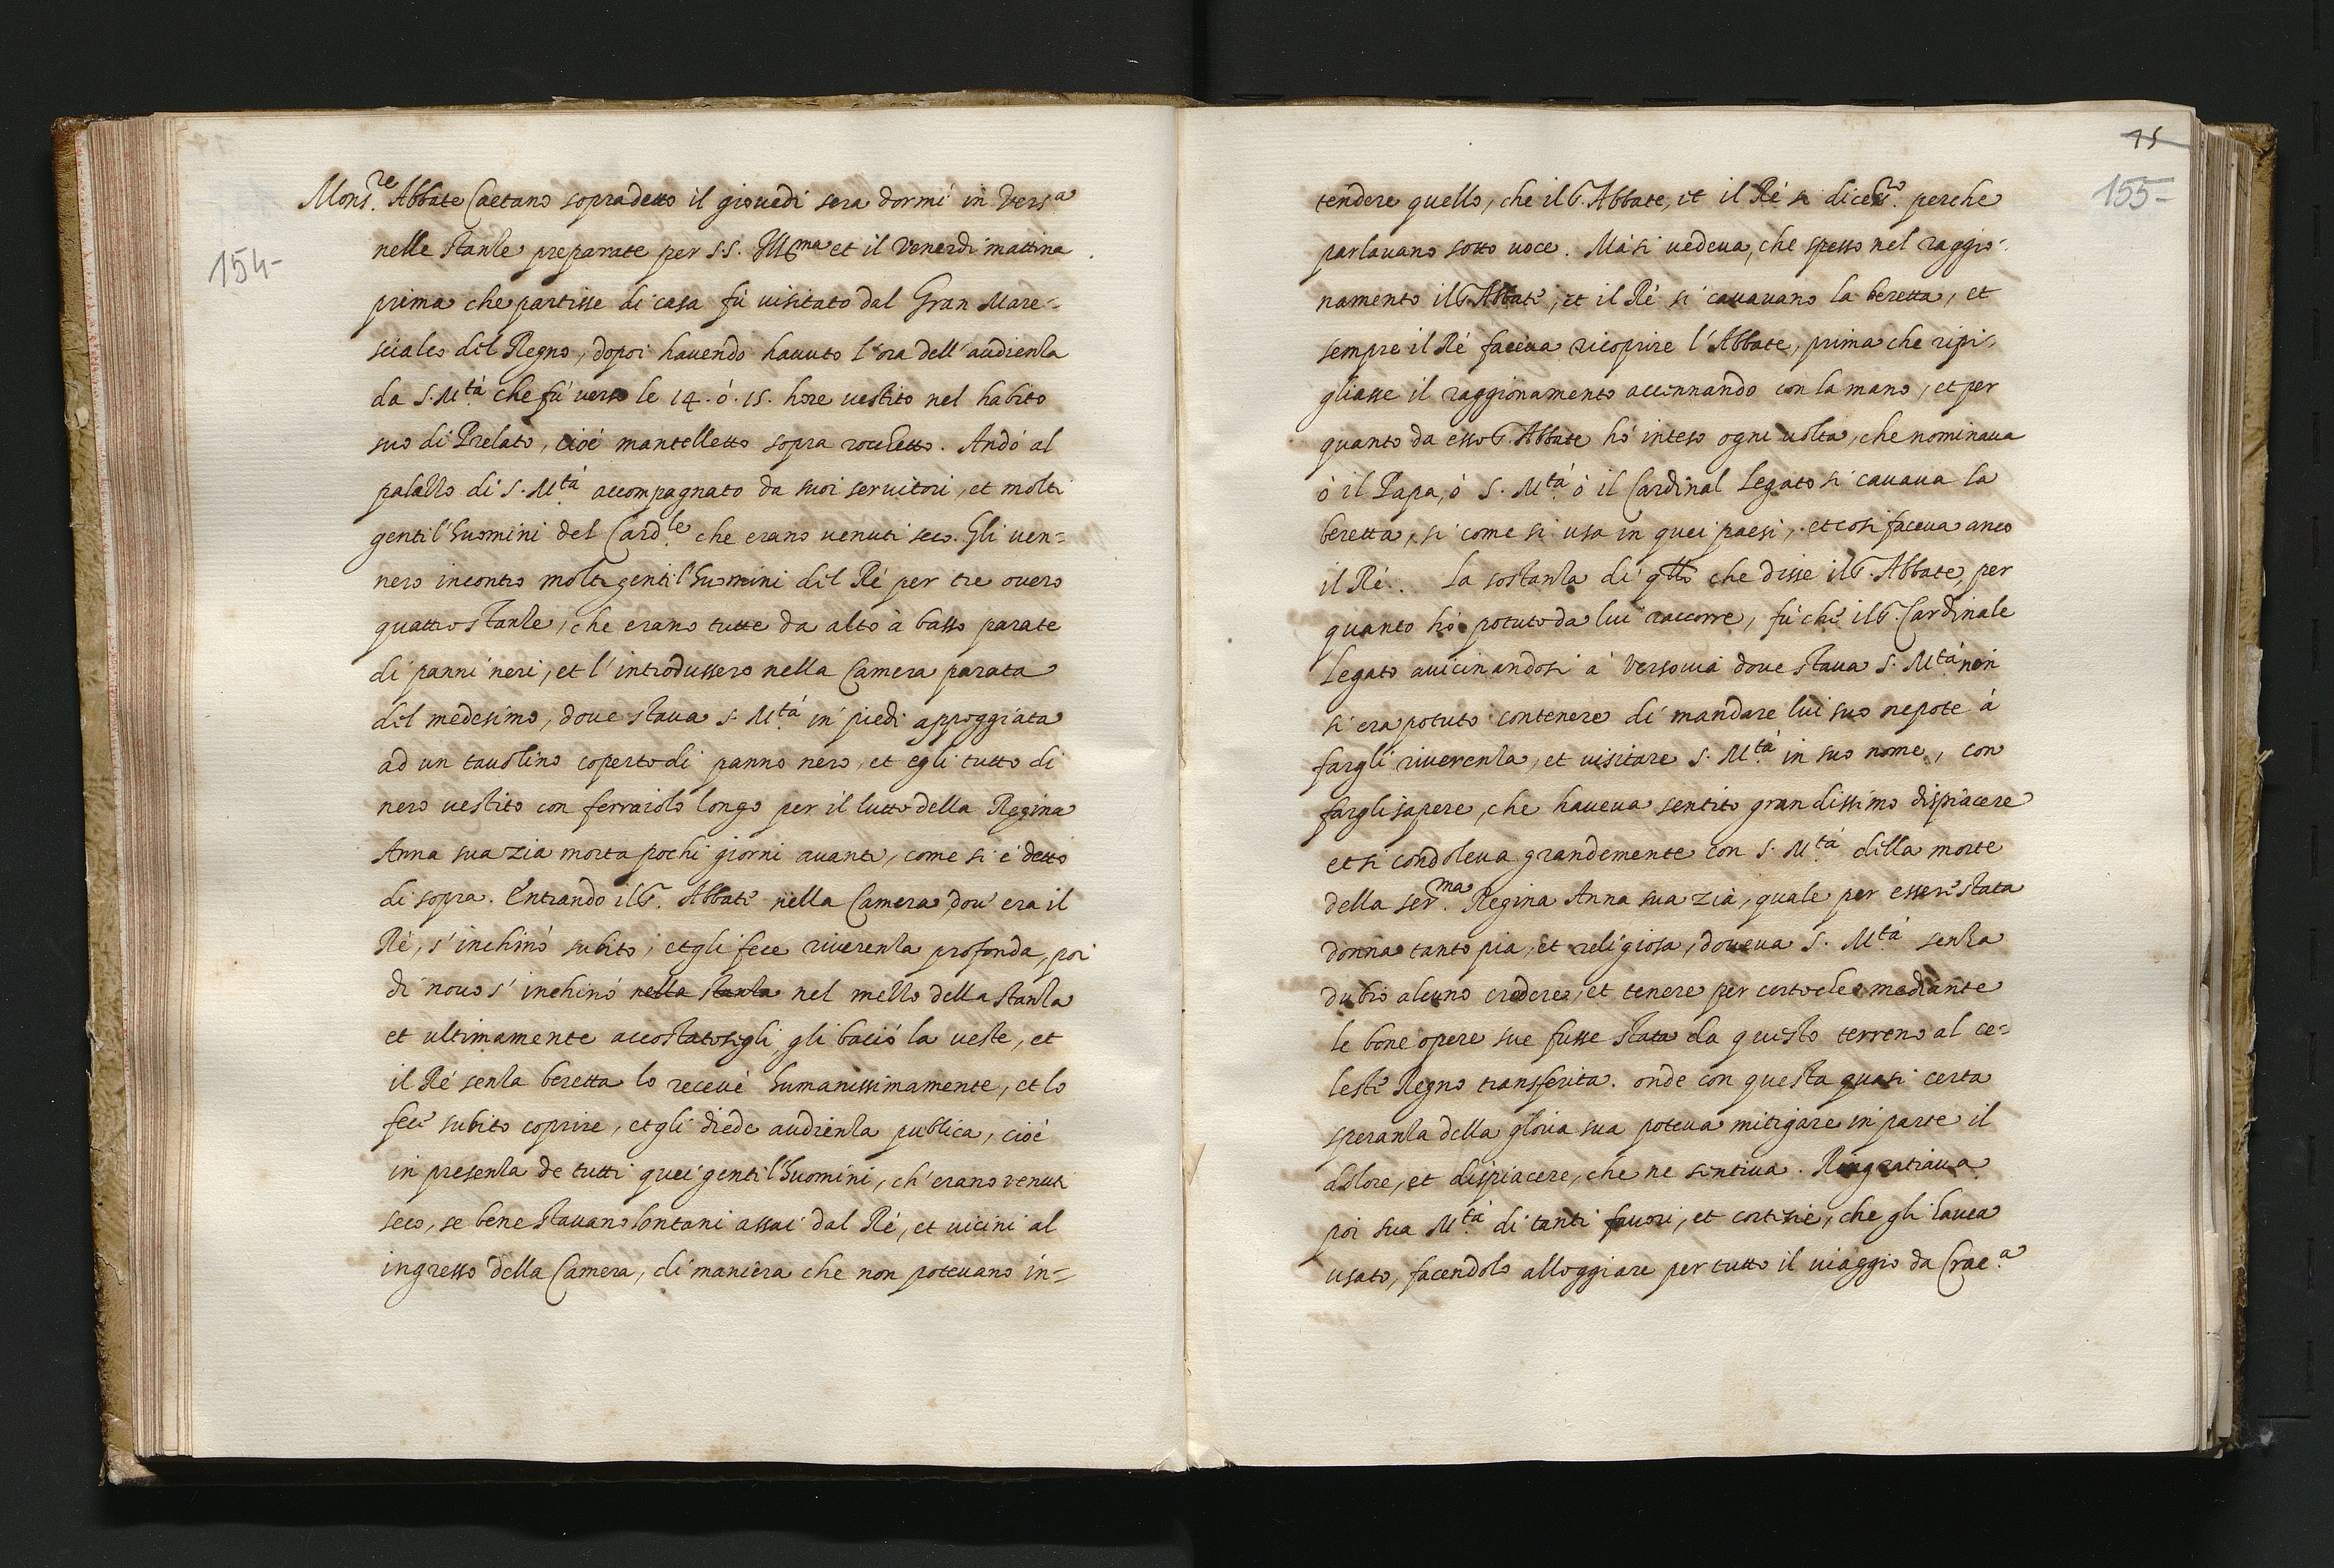 154-
Mons.re Abbate Caetano sopradetto il giovedi sera dormi in Vers.a
nelle stanze preparate per S.S. Ill.ma et il Venerdi mattina
prima che partisse di casa fù visitato dal Gran Mare-
scialco del Regno, dopoi havendo havuto l'ora dell'audienza
da S. M.tà che fù verso le 14. ò 15. hore vestito nel habito
suo di Prelato, cioè mantelletto sopra rocchetto. Andò al
palazzo di S. M.tà accompagnato da suoi servitori, et molti
gentil'huomini del Card.le che erano venuti seco. Gli ven=
nero incontro molti gentil'huomini del Rè per tre overo
quattro stanze, che erano tutte da alto à basso parate
di panni neri, et l'introdussero nella Camera parata
del medesimo, dove stava S. M.tà in piedi appoggiata
ad un tavolino coperto di panno nero, et egli tutto di
nero vestito con ferraiolo longo per il lutto della Regina
Anna sua zia morta pochi giorni avanti, come si è detto
di sopra. Entrando il S. Abbate nella Camera dov'era il
Rè, s'inchinò subito, et gli fece riverenza profonda, poi
di novo s'inchinò nella stanza nel mezzo della stanza
et ultimamente accostatosegli, gli baciò la veste, et
il Rè senza beretta lo recevè humanissimamente, et lo
fece subito coprire, et gli diede audienza publica, cioè
in presenza de tutti quei gentil'huomini, ch'erano venuti
seco, se bene stavano lontani assai dal Rè, et vicini al
ingresso della Camera, di maniera che non potevano in=
75
155-
tendere quello, che il S. Abbate, et il Rè si perche
parlavano sotto voce. Mà si vedeva, che spesso nel raggio-
namento il S. Abbate, et il Rè si cavavano la beretta, et
sempre il Rè faceva ricoprire l'Abbate, prima che ripi-
gliasse il raggionamento accennando con la mano, et per
quanto da esso S. Abbate hò inteso ogni volta, che nominava
ò il Papa, ò S. M.tà ò il Cardinal Legato si cavava la
beretta, si come si usa in quei paesi, et cosi faceva anco
il Rè. La sostanza di qllo che disse il S. Abbate, per
quanto hò potuto da lui raccorre, fù che il S. Cardinale
Legato avicinandosi à Versovia dove stava S. M.tà non
si era potuto contenere di mandare lui suo nepote à
fargli riverenza, et visitare S. M.tà in suo nome, con
fargli sapere, che haveva sentito grandissimo dispiacere
et si condoleva grandemente con S. M.tà della morte
della ser.ma Regina Anna sua zia, quale per essere stata
donna tanto pia, et religiosa, doveva S. M.tà senza
dubio alcuno credere, et tenere per certo che mediante
le bone opere sue fusse stata da questo terreno al ce=
leste Regno transferita. onde con questa quasi certa
speranza della gloria sua poteva mitigare in parte il
dolore, et dispiacere, che ne sentiva. Ringratiava
poi sua M.tà di tanti favori, et cortesie, che gli havea
usato, facendolo alloggiare per tutto il viaggio da Crac.a